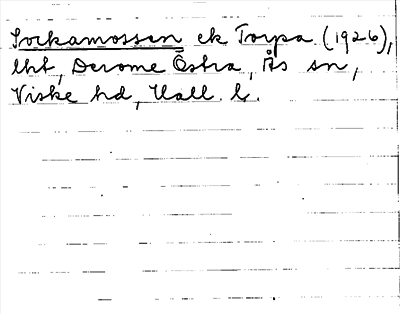 Sockamossen ek Torpa (1926),
lht, Derome Östra, Ås sn,
Viske hd, Hall. l.